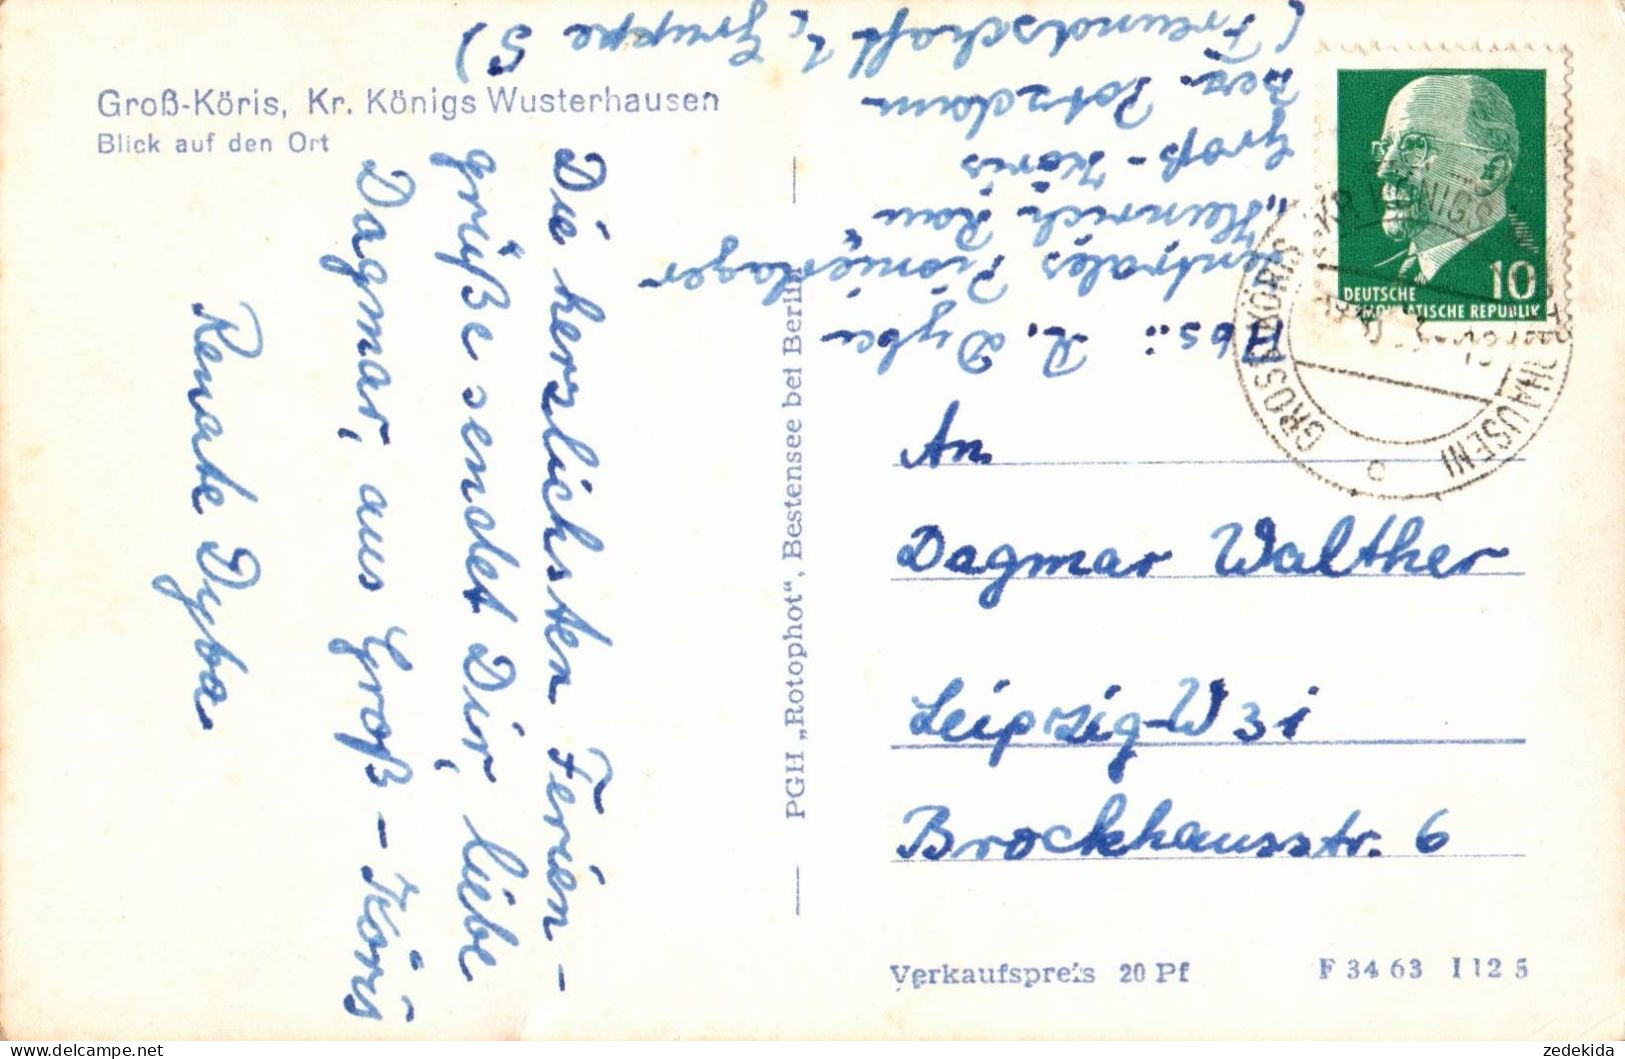 Groß-Köris, Kr. Königs Wusterhausen
Blick auf den Ort
Die herzlichsten Ferien-
grüße sendet Dir, liebe
Dagmar, aus Groß-Köris
Renate Dyba
PGH „Rotophot“, Bestensee bei Berlin
Abs.: R. Dyba
Zentrales Pionierlager
"Heinrich Rau"
Groß-Köris
Bez. Potsdam
(Freundschaft 1, Gruppe 5)
DEUTSCHE
DEMOKRATISCHE REPUBLIK
10
GROSS KÖRIS (KR KÖNIGS WUSTERHAUSEN)
An
Dagmar Walther
Leipzig-W 31
Brockhausstr. 6
Verkaufspreis 20 Pf
F 34 63 I 12 5
zedekida